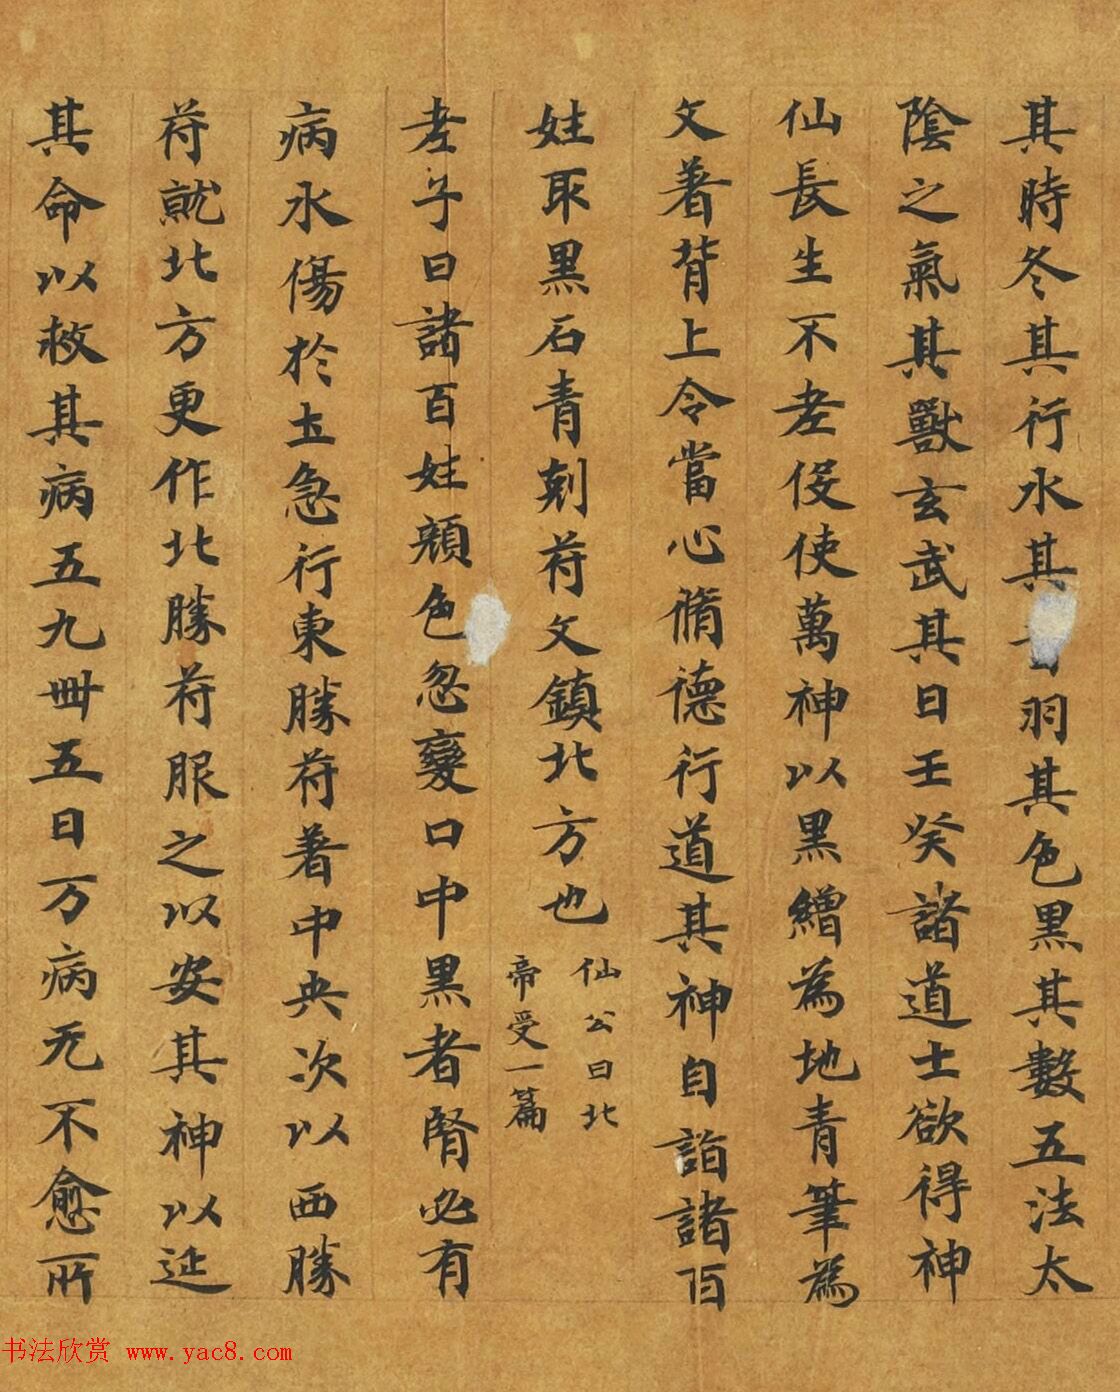 其時冬其行水其羽其色黑其數五法太
陰之氣其獸玄武其日壬癸諸道士欲得神
仙長生不老役使萬神以黑繒為地青筆為
文著背上令當心脩德行道其神自詣諸百
姓取黑石青刻符文鎮北方也
仙公曰北
帝受一篇
老子曰諸百姓顏色忽變口中黑者腎必有
病水傷於土急行東勝符著中央次以西勝
符就北方更作北勝符服之以安其神以延
其命以救其病五九卌五日万病无不愈所
书法欣赏 www.yac8.com